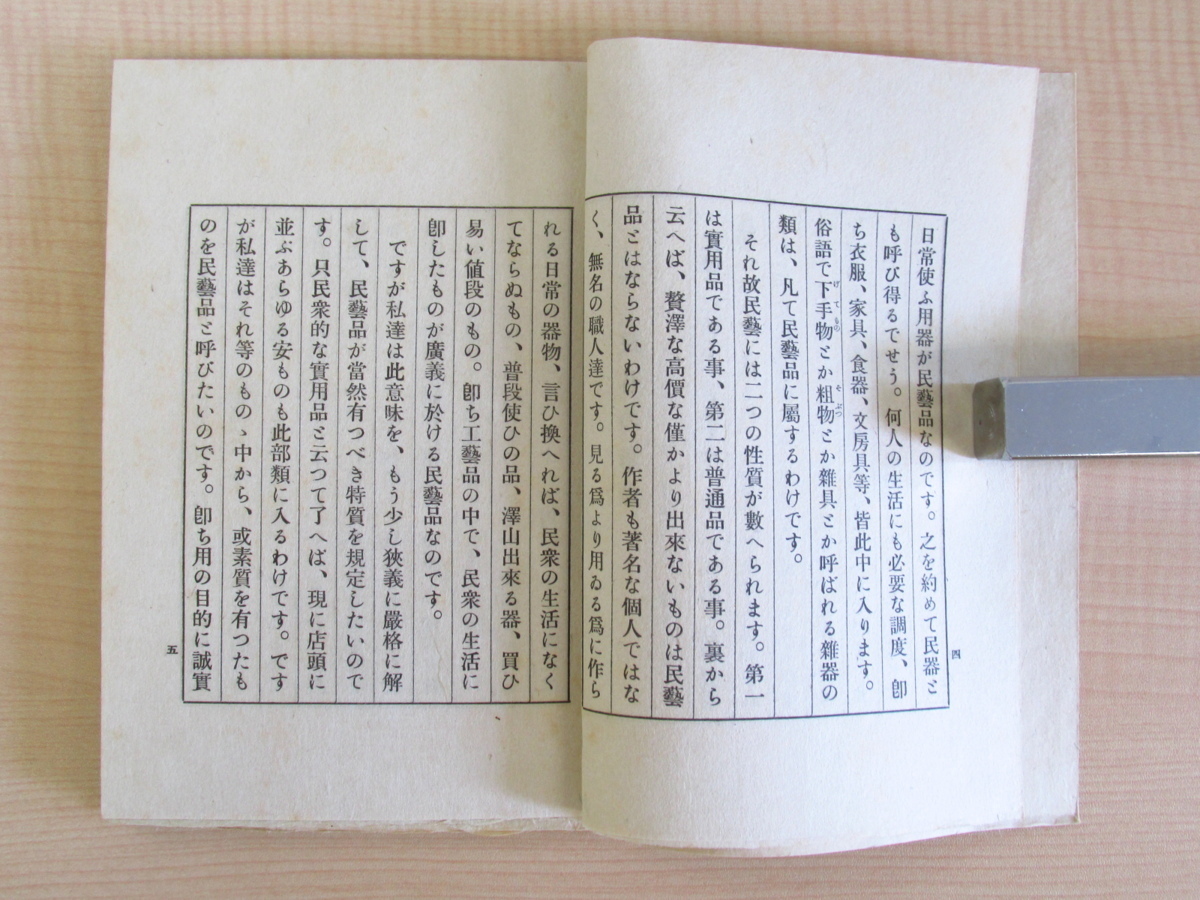 日常使ふ用器が民藝品なのです。之を約めて民器と
も呼び得るでせう。何人の生活にも必要な調度、卽
ち衣服、家具、食器、文房具等、皆此中に入ります。
俗語で下手物とか粗物とか雜具とか呼ばれる雜器の
げてもの
そぶつ
類は、凡て民藝品に屬するわけです。
それ故民藝には二つの性質が數へられます。第一
は實用品である事、第二は普通品である事。裏から
云へば、贅澤な高價な僅かより出來ないものは民藝
品とはならないわけです。作者も著名な個人ではな
く、無名の職人達です。見る爲より用ゐる爲に作ら
四
れる日常の器物、言ひ換へれば、民衆の生活になく
てならぬもの、普段使ひの品、澤山出來る器、買ひ
易い値段のもの。卽ち工藝品の中で、民衆の生活に
卽したものが廣義に於ける民藝品なのです。
ですが私達は此意味を、もう少し狹義に嚴格に解
して、民藝品が當然有つべき特質を規定したいので
す。只民衆的な實用品と云つて了へば、現に店頭に
並ぶあらゆる安ものも此部類に入るわけです。です
が私達はそれ等のものゝ中から、或素質を有つたも
のを民藝品と呼びたいのです。卽ち用の目的に誠實
五